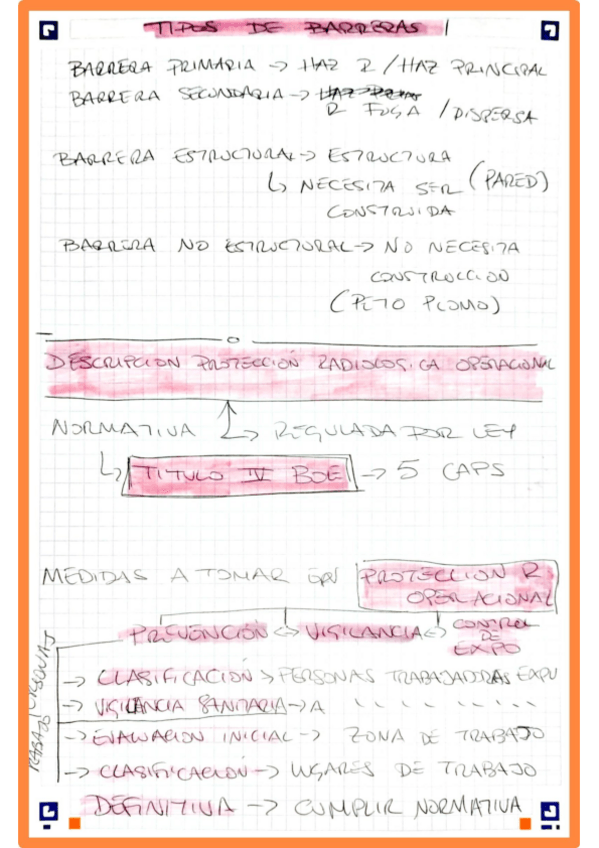 TIPOS DE BARRERAS
BARRERA PRIMARIA → HAZ R / HAZ PRINCIPAL
BARRERA SECUNDARIA →
R FUGA / DISPERSA
BARRERA ESTRUCTURAL → ESTRUCTURA
↳ NECESITA SER (PARED)
CONSTRUIDA
BARRERA NO ESTRUCTURAL → NO NECESITA
CONSTRUCCION
(PETO PLOMO)
DESCRIPCION PROTECCIÓN RADIOLOGICA OPERACIONAL
NORMATIVA ↳ REGULADA POR LEY
↳ TITULO IV BOE → 5 CAPS
MEDIDAS A TOMAR EN PROTECCION R
OPERACIONAL
PREVENCIÓN ↔ VIGILANCIA ↔ CONTROL
DE
EXPO
→ CLASIFICACIÓN > PERSONAS TRABAJADORAS EXPU
→ VIGILANCIA SANITARIA → A
→ EVALUACION INICIAL → ZONA DE TRABAJO
→ CLASIFICACIÓN → LUGARES DE TRABAJO
PERSONAS
TRABAJO
DEFINITIVA → CUMPLIR NORMATIVA